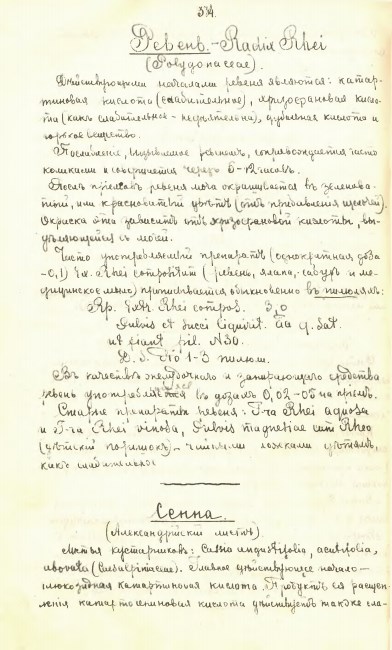 334.
Ревень. - Radix Rhei
(Polygonaceae).
Дѣйствующими началами ревеня являются: катар-
тиновая кислота (слабительное), хризофановая кисло-
та (какъ слабительное - недѣятельна), дубильная кислота и
горькое вещество.
Послабленіе, вызываемое ревенемъ, сопровождается часто
коликами и совершается черезъ 6-12 часовъ.
Послѣ пріемовъ ревеня моча окрашивается въ зеленова-
тый, или красноватый цвѣтъ (отъ прибавленія щелочей).
Окраска эта зависитъ отъ хризофановой кислоты, вы-
дѣляющейся съ мочей.
Часто употребляемый препаратъ (однократная доза
- 0,1) Ex. Rhei compositum (ревень, ялапа, сабуръ и ме-
дицинское мыло) прописывается обыкновенно въ пилюляхъ:
Rp. Extr. Rhei compos. 3,0
Pulvis et Succi Liquirit. aa q. sat.
ut fiant pil. N30.
D. S. По 1-3 пилюли.
Въ качествѣ желудочнаго и запирающаго средства
ревень употребляется въ дозахъ 0,02-05 на пріемъ.
Старые препараты ревеня: T-ra Rhei aquosa
и T-ra Rhei vinosa, Pulvis magnesiae cum Rheo
(дѣтскій порошокъ) - чайными ложками дѣтямъ,
какъ слабительное
Сенна.
(Александрійскій листъ)
Листья кустарниковъ: Cassia angustifolia, acutifolia,
obovata (Caesalpiniaceae). Главное дѣйствующее начало -
глюкозидная катартиновая кислота. Продуктъ ея расщеп-
ленія катартогениновая кислота дѣйствуетъ также сла-